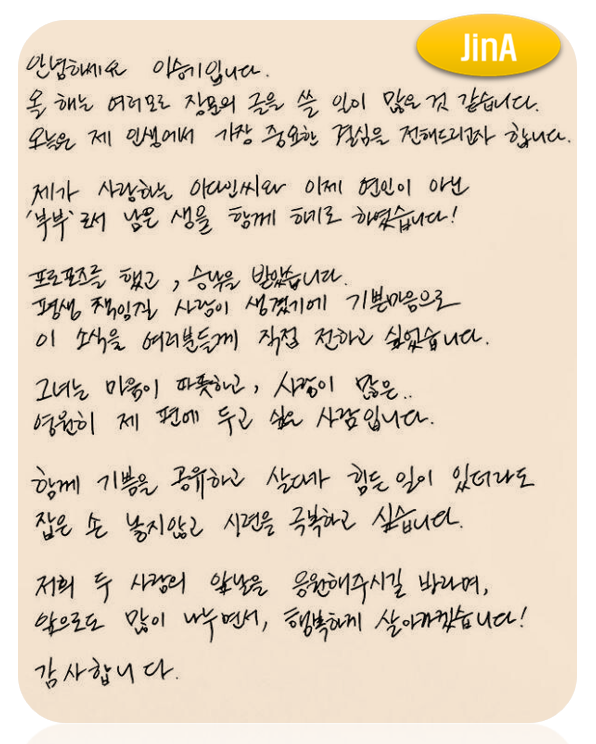 JinA
안녕하세요 이승기입니다.
올 해는 여러모로 장문의 글을 쓸 일이 많은 것 같습니다.
오늘은 제 인생에서 가장 중요한 결심을 전해드리고자 합니다.
제가 사랑하는 이다인씨와 이제 연인이 아닌
'부부'로서 남은 생을 함께 하기로 하였습니다!
프로포즈를 했고, 승낙을 받았습니다.
평생 책임질 사람이 생겼기에 기쁜마음으로
이 소식을 여러분들께 직접 전하고 싶었습니다.
그녀는 마음이 따뜻하고, 사랑이 많은..
영원히 제 편에 두고 싶은 사람입니다.
함께 기쁨을 공유하고 살다가 힘든 일이 있더라도
잡은 손 놓지않고 시련을 극복하고 싶습니다.
저희 두 사람의 앞날을 응원해주시길 바라며,
앞으로도 많이 나누면서, 행복하게 살아가겠습니다!
감사합니다.